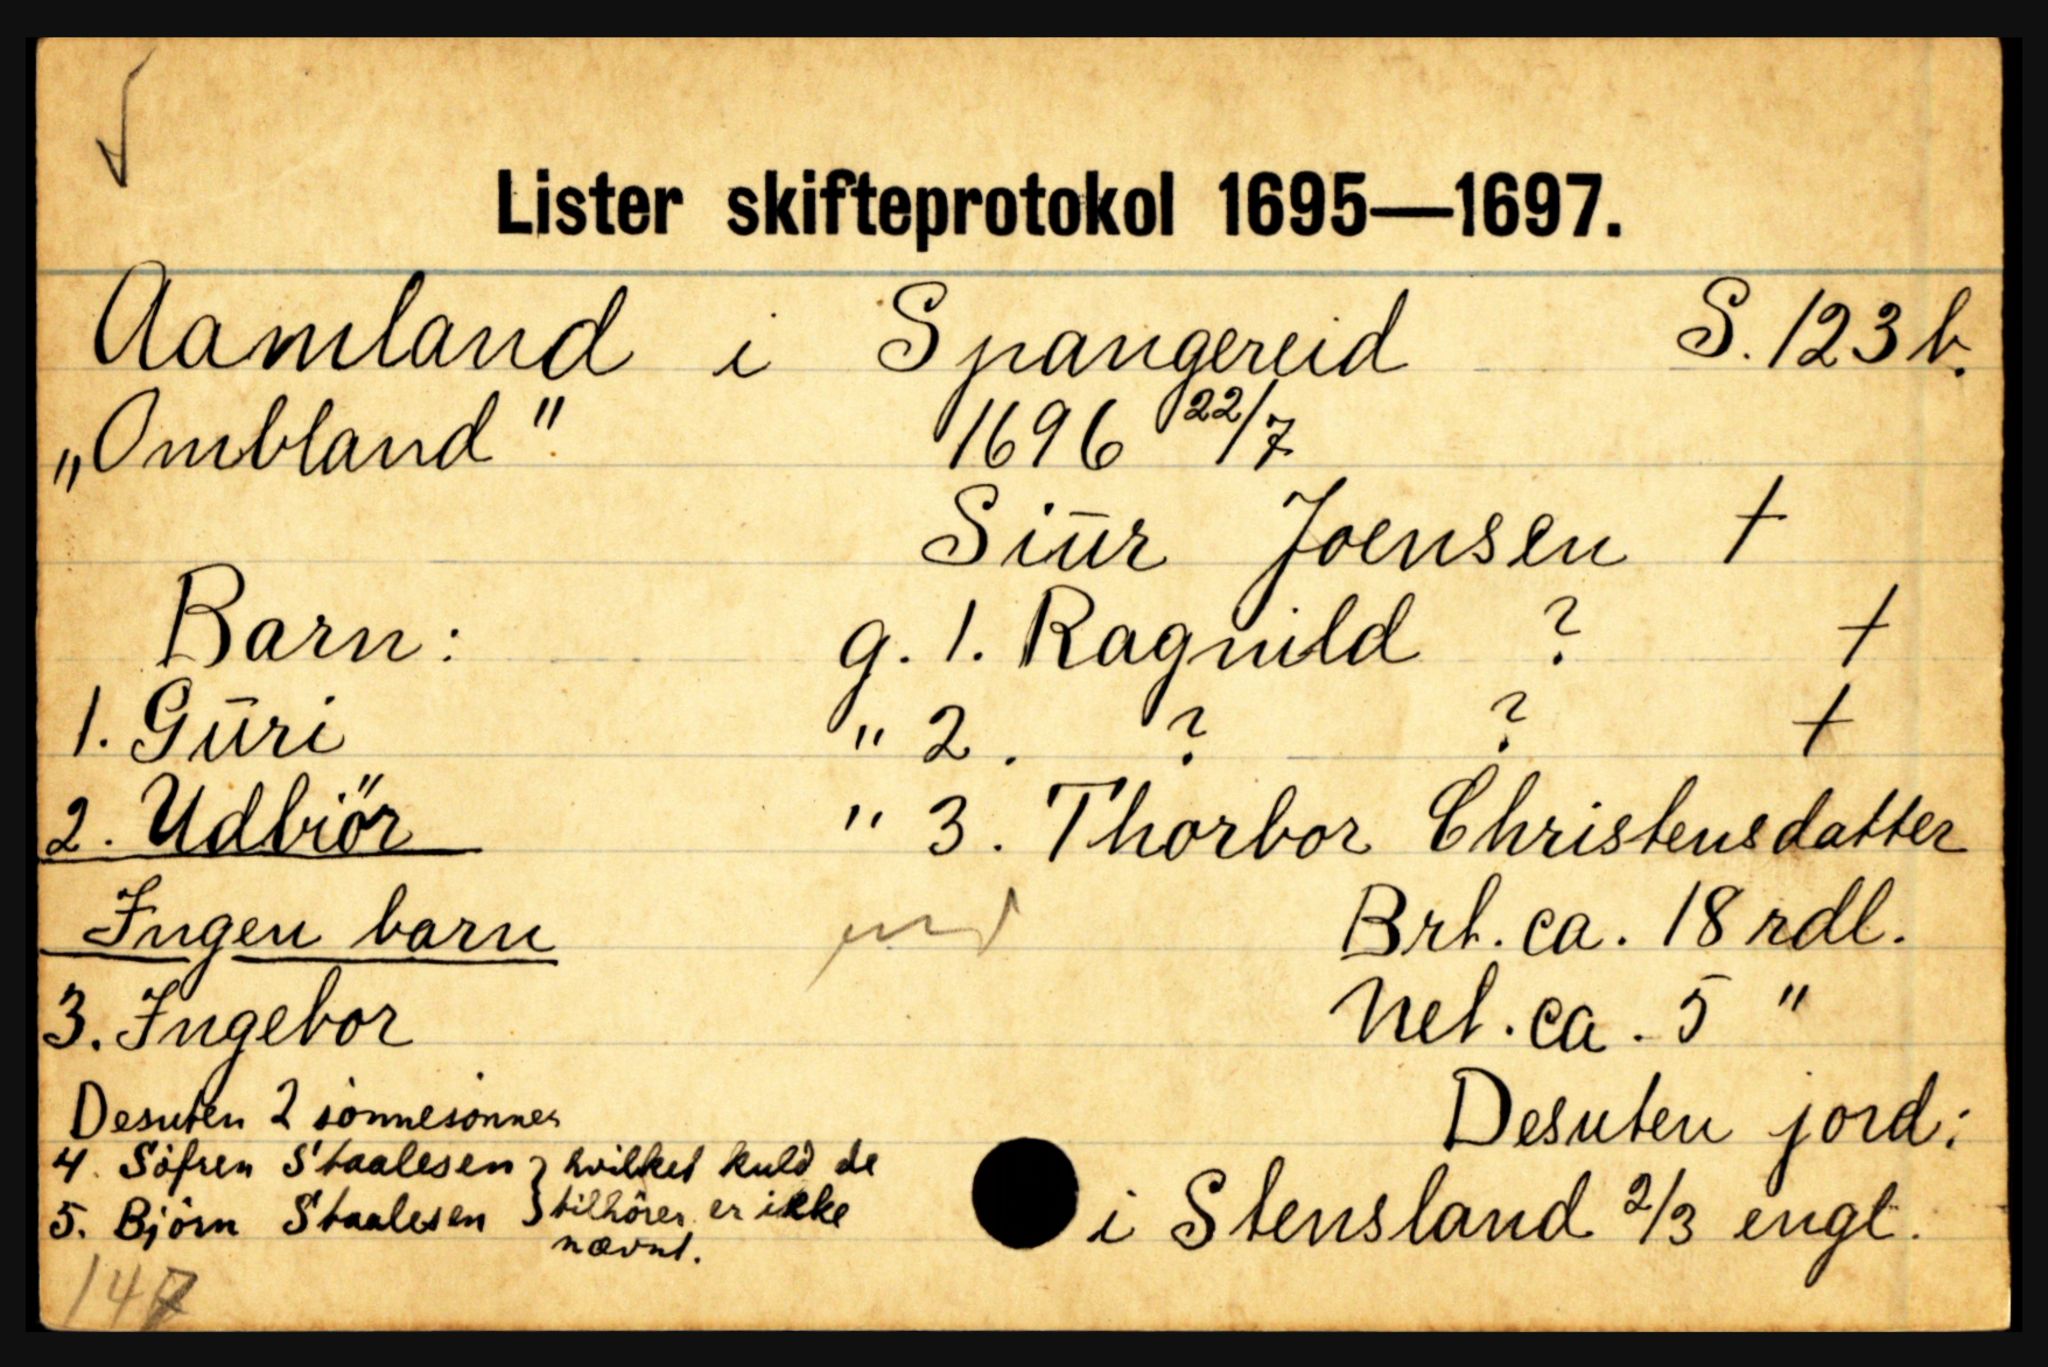 Lister skifteprotokol 1695—1697.
Aamland i Spangereid S. 123 b.
„Ombland" 1696 22/7
Siūr Joensen †
Barn: g. 1. Ragnild ? †
1. Gūri " 2. ? ? †
2. Udbiör " 3. Thorbor Christensdatter
Ingen barn Brt. ca. 18 rdl.
3. Ingebor Net. ca. 5 "
Desuten 2 sønnesønner Desuten jord:
4. Söfren Staalesen } hvilket kuld de
5. Björn Staalesen } tilhörer er ikke i Stensland 2/3 engl.
nævnt.
147